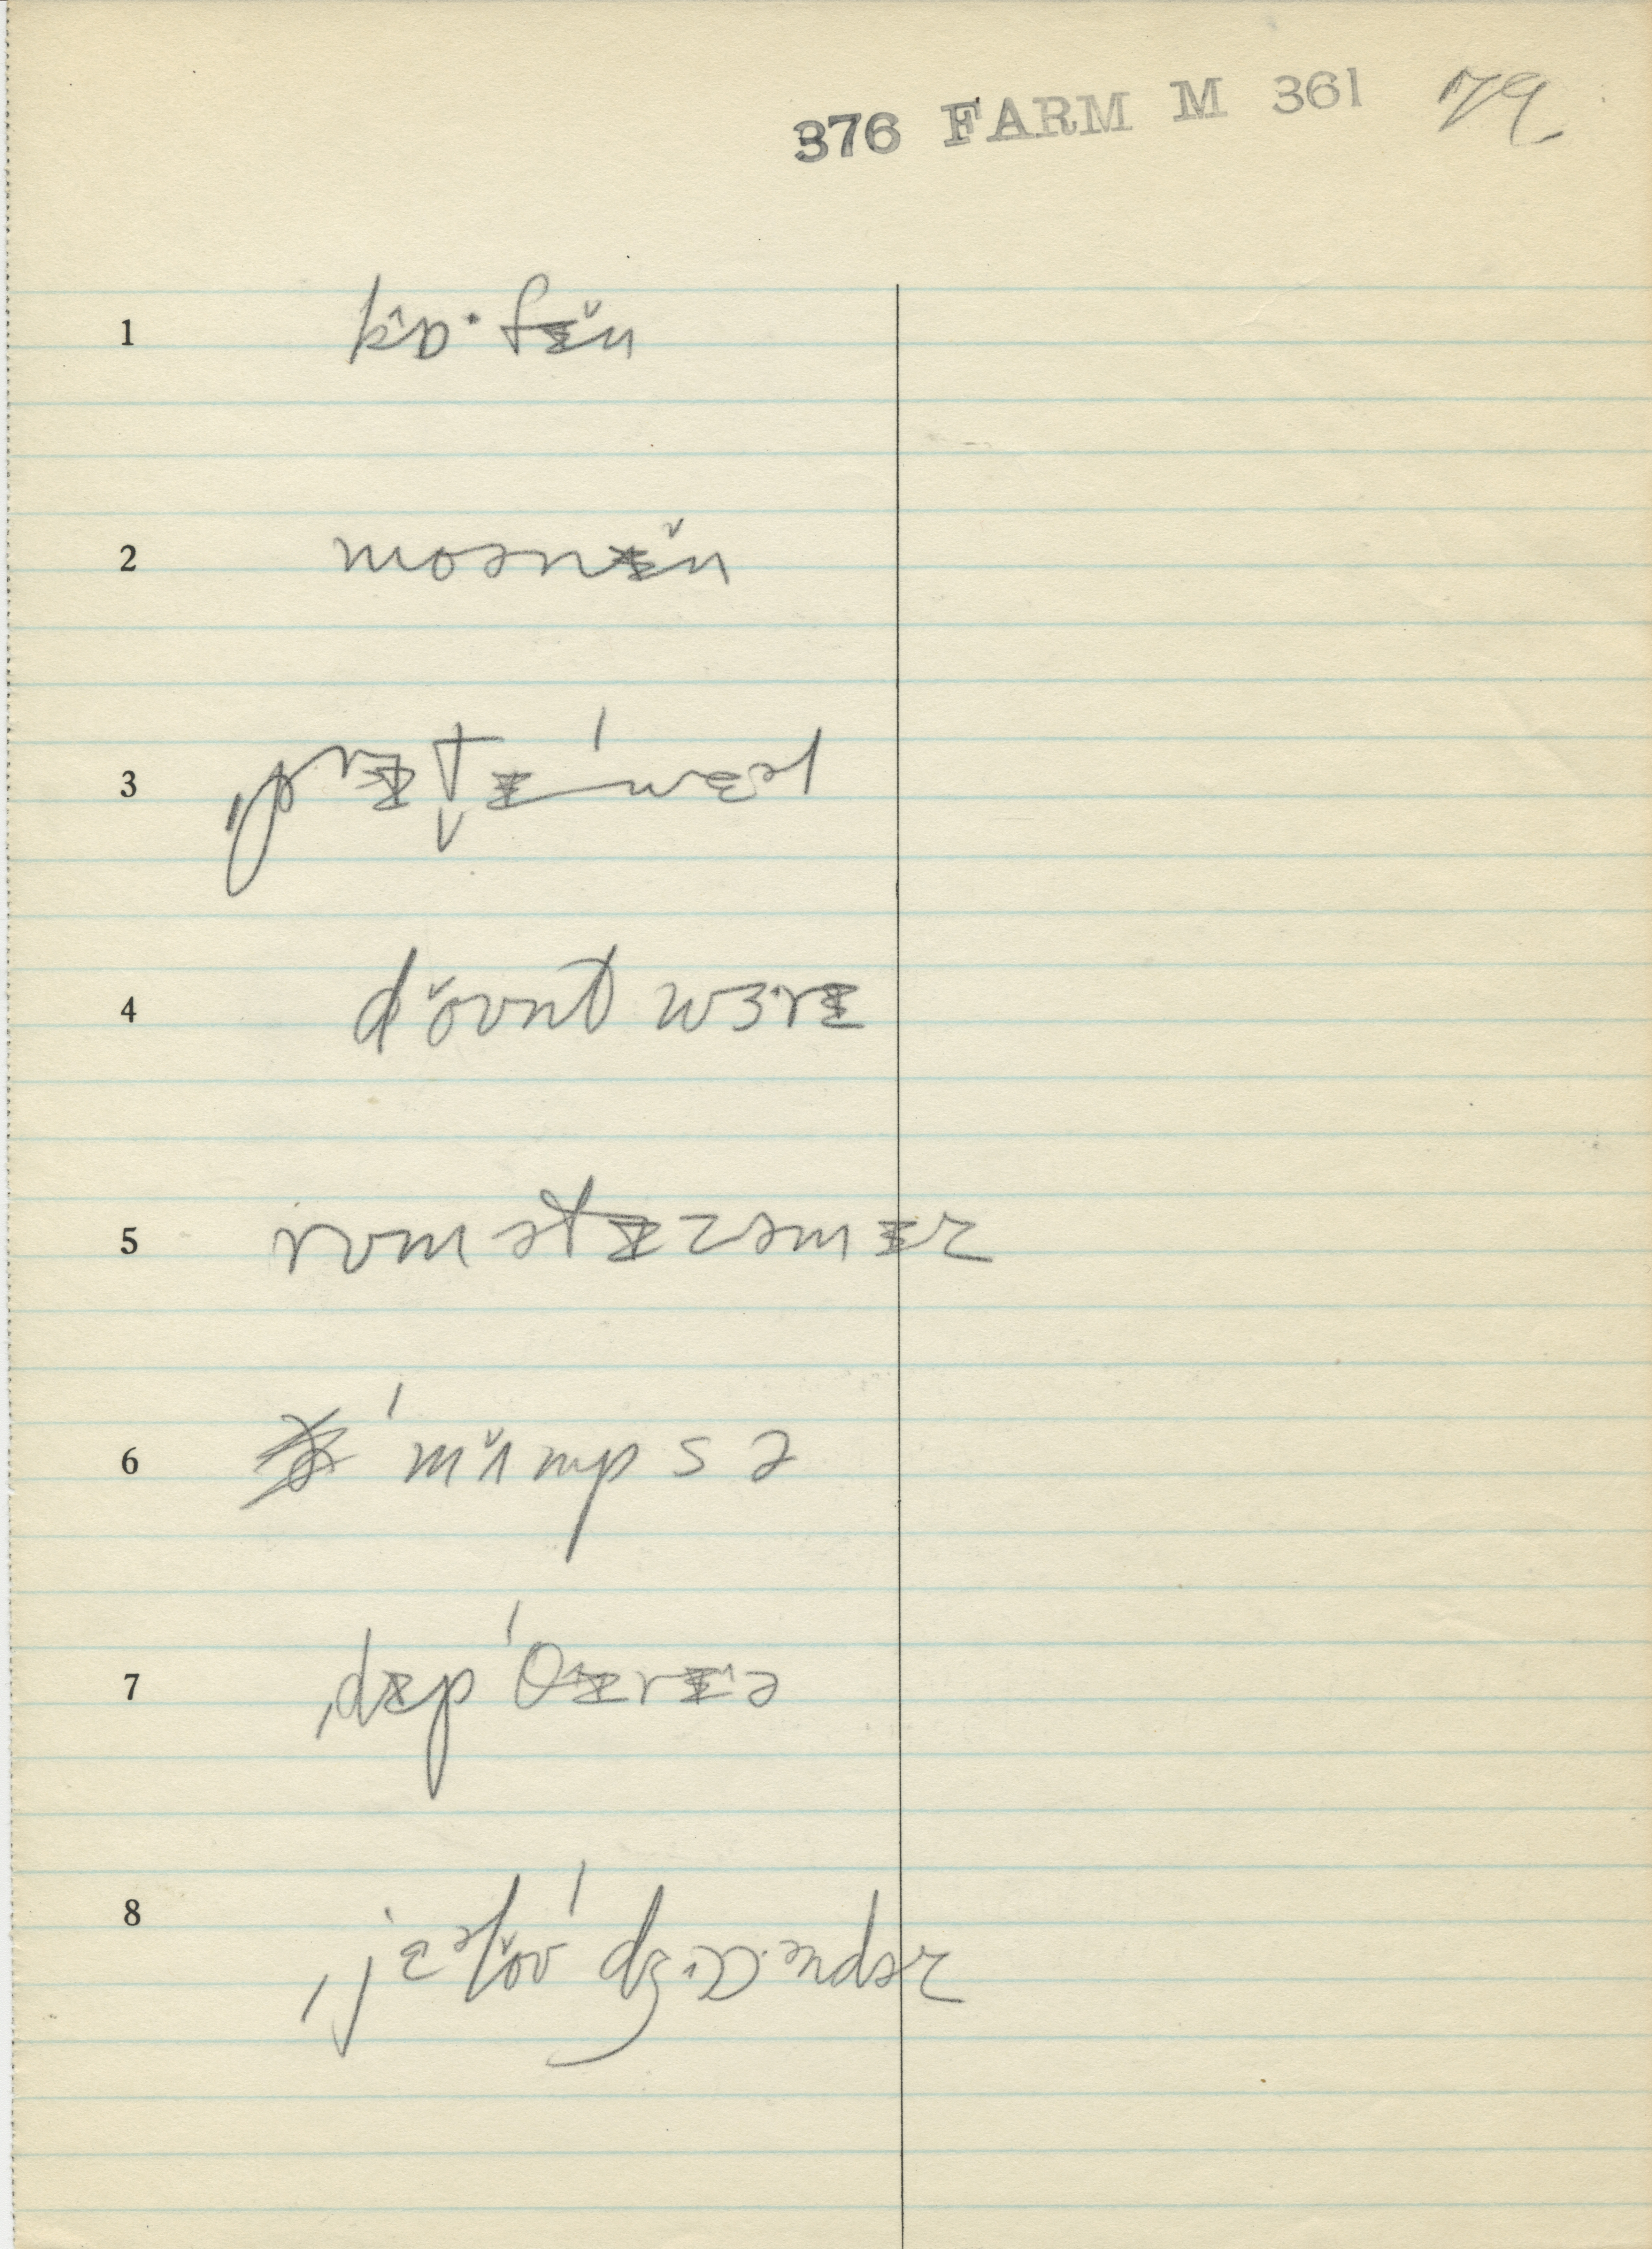 376 FARM M 361 79.
1 kɒ̂·fɪ̆n
2 moənɪ̆n
3 ˌprɪt̬ɪˈwɛəl
4 dŏʊnt wɜ·rɪ
5 rʊmətɪzəmɪz
6 ˈmʌ̆mpsə
7 ˌdɪpˈθɪ^rɪ^ə
8 ˌjɛəlŏʊˈdʒɒ·əndəz